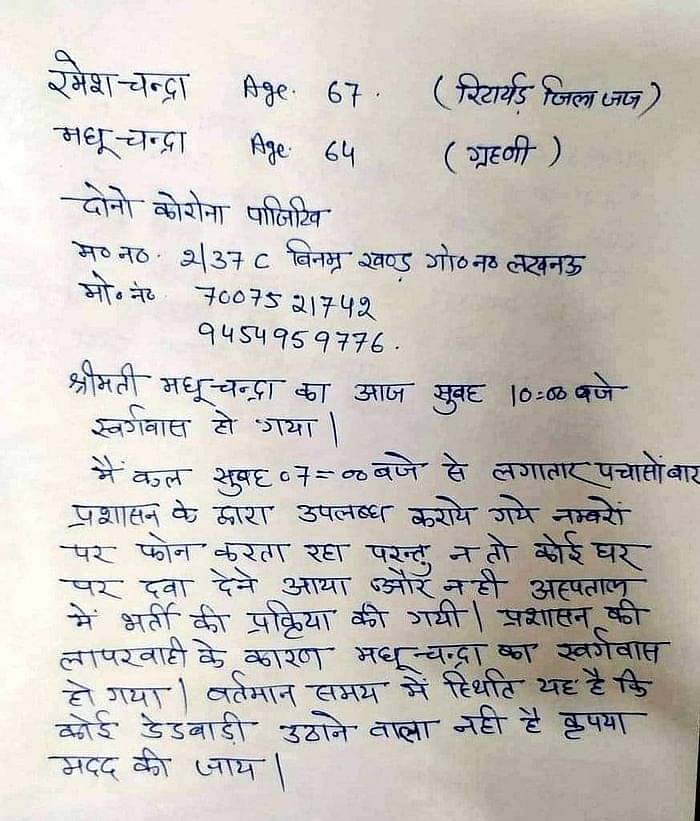 रमेश चन्द्रा Age. 67. (रिटायर्ड जिला जज)
मधू चन्द्रा Age. 64 (ग्रहणी)
दोनो कोरोना पाजिटिव
म० न०. 2/37 C विनम्र खण्ड गो० न० लखनऊ
मो० नं०. 7007521742
9454959776.
श्रीमती मधू चन्द्रा का आज सुबह 10=00 बजे
स्वर्गवास हो गया।
मैं कल सुबह 07=00 बजे से लगातार पचासों बार
प्रशासन के द्वारा उपलब्ध कराये गये नम्बरों
पर फोन करता रहा परन्तु न तो कोई घर
पर दवा देने आया और न ही अस्पताल
में भर्ती की प्रक्रिया की गयी। प्रशासन की
लापरवाही के कारण मधू चन्द्रा का स्वर्गवास
हो गया। वर्तमान समय में स्थिति यह है कि
कोई डेडबाड़ी उठाने वाला नही है कृपया
मदद की जाय।